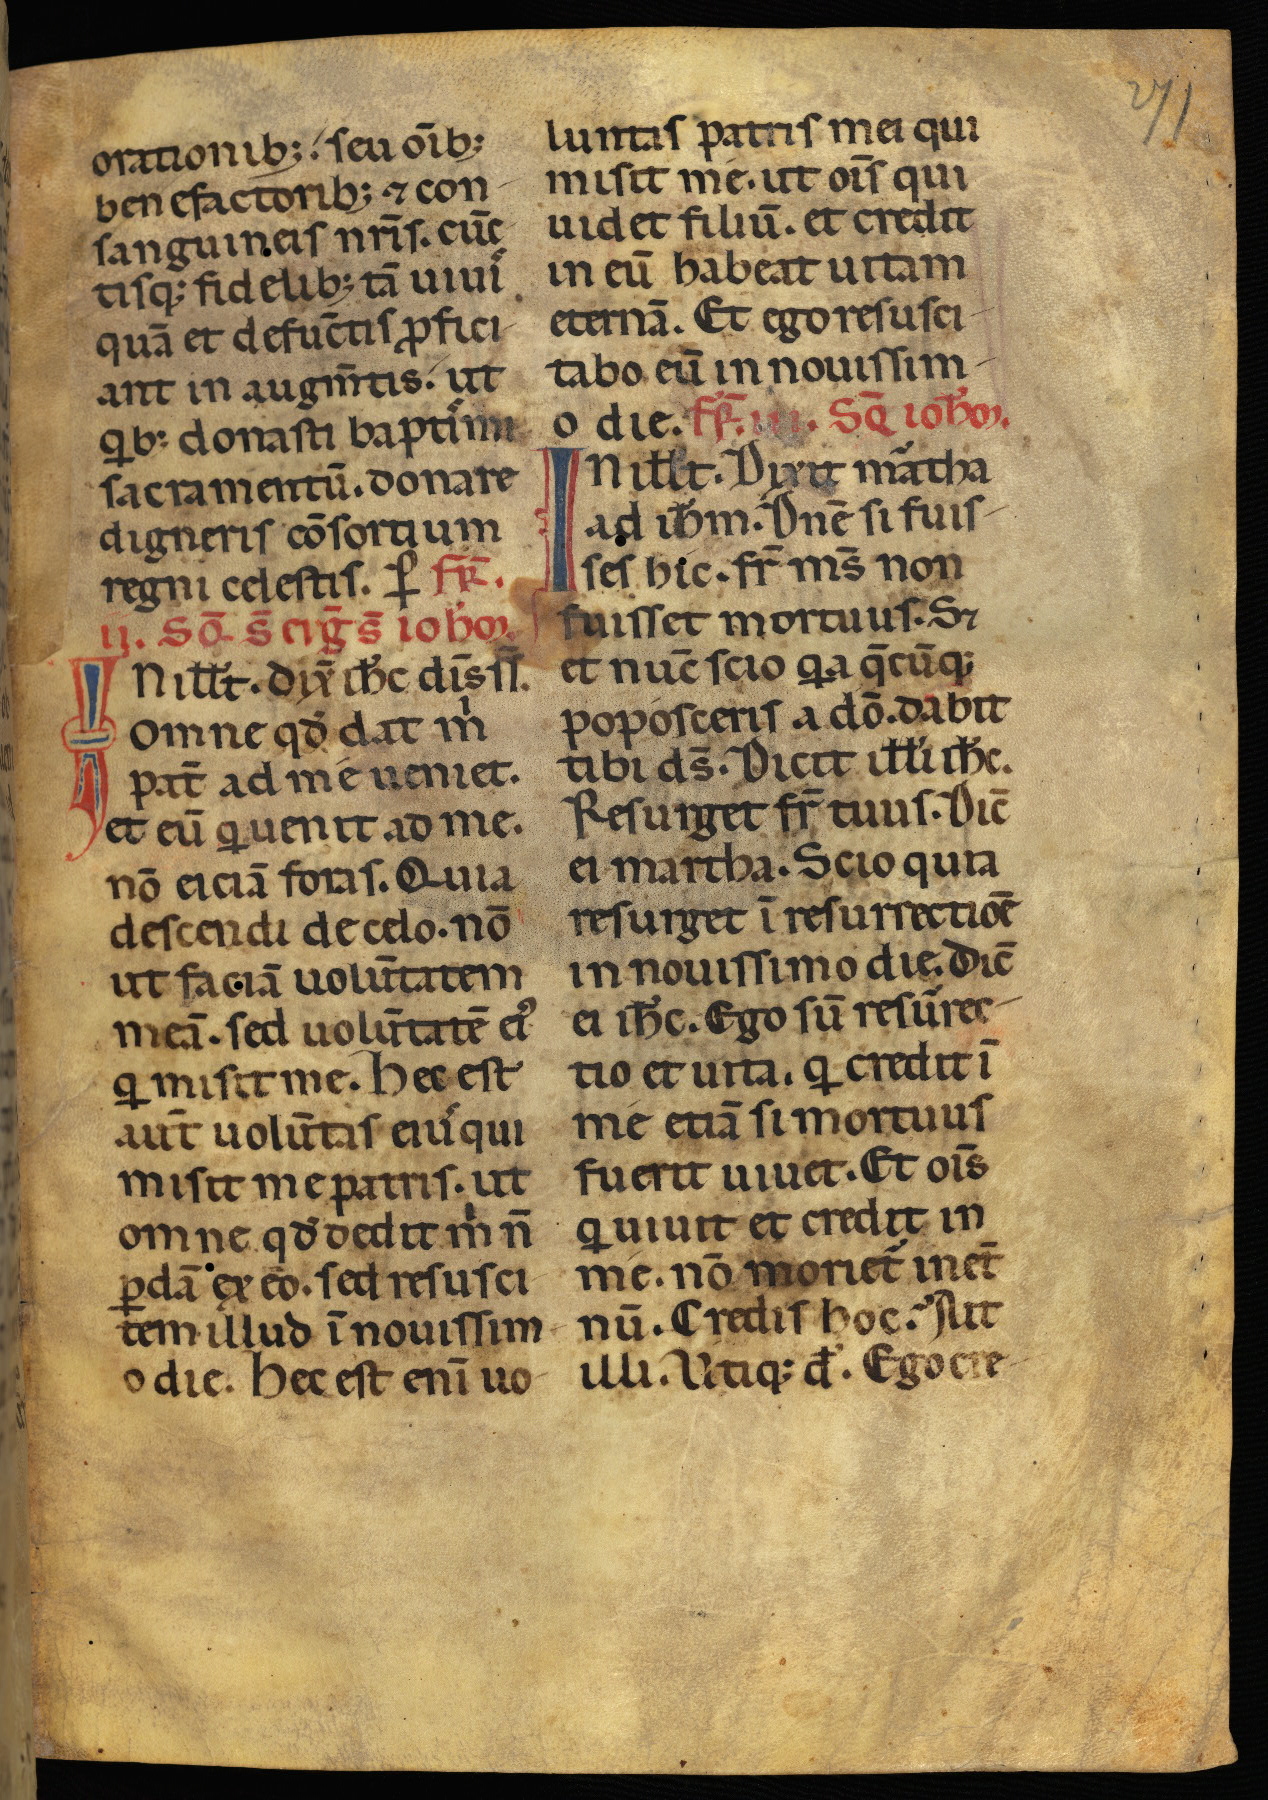 271
orationib;. seu oīb;
benefactorib; ⁊ con-
sanguineis nr̄is. cūc
tisq; fidelib; tā uiui
quā et defūctis ꝓfici-
ant in augm̄tis. ut
qͥb; donasti baptismi
sacramentū. donare
digneris cōsortium
regni celestis. ꝑ fr̄.
ii. Sō. S ioh̄
INill̄t. dix̄ ih̄c dīs s̄.
omne qd̄ dat mͥ
pat̄ ad me ueniet.
et eū qͥ uenit ad me.
nō eiciā foras. Quia
descendi de celo. nō
ut faciā uolūtatem
meā. sed uolūtatē eiꝰ
qͥ misit me. Hec est
aut̄ uolūtas eiuˢ qui
misit me patris. ut
omne qd̄ dedit mͥ n̄
ꝑdā ex eo. sed resusci-
tem illud ī nouissim-
o die. Hec est enī uo-
luntas patris mei qui
misit me. ut oīs qui
uidet filiū. et credit
in eū habeat uitam
eternā. Et ego resusci-
tabo eū in nouissim-
o die. fr̄. iii. Sō ioh̄
INill̄t. Dixit mātha
ad ih̄m. Dnē si fuis-
ses hic. fr̄ ms̄ non
fuisset mortuus. S⁊
et nūc scio qͥa q̄cūq;
poposceris a dō. dabit
tibi ds̄. Dicit illi ih̄c.
Resurget fr̄ tuus. Dic̄
ei martha. Scio quia
resurget ī resurrectioē
in nouissimo die. Dic̄
ei ih̄c. Ego sū resūrec-
tio et uita. qͥ credit ī
me etiā si mortuus
fuerit uiuet. Et oīs
qͥ uiuit et credit in
me. nō moriet̄ inet̄
nū. Credis hoc. Ait
illi. Utiq; d̄. Ego cre-